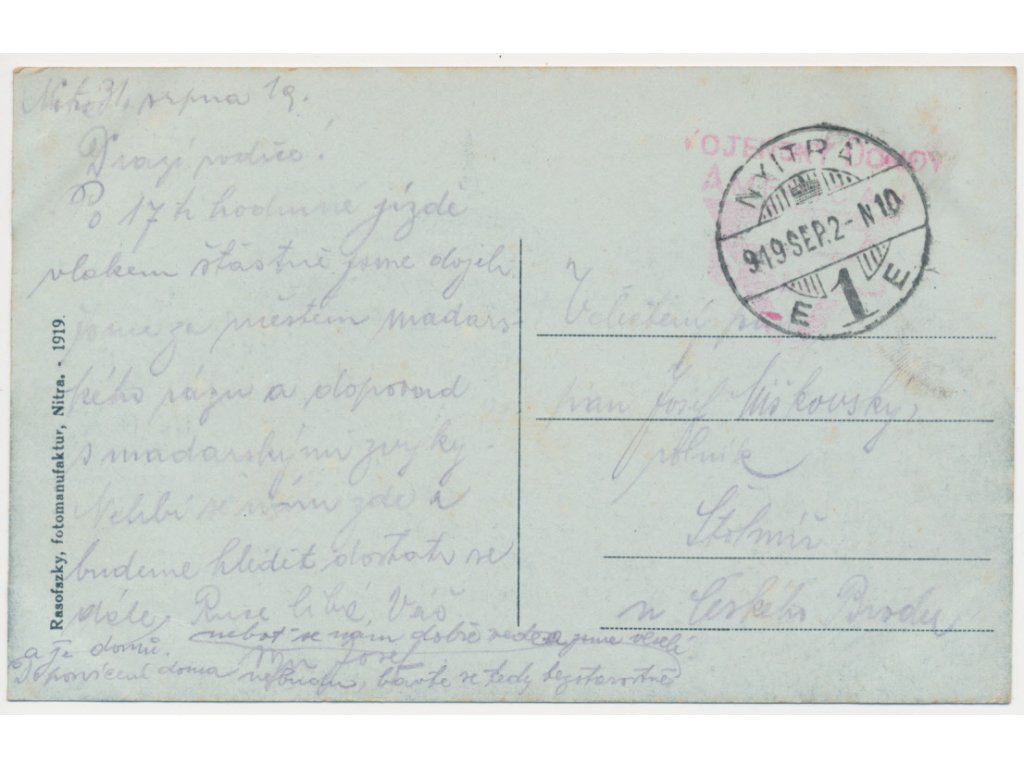 31. srpna 19.
Drazí rodiče!
Po 17 h hodinné jízdě
vlakem šťastně jsme dojeli
jsme za městem madars-
kého rázu a doposud
s madarskými zvyky.
Nelíbí se nám zde a
budeme hledět dostati se
dále. Ruce líbá Váš
neboť se nám dobře vede a jsme veselí
a je domů. Josef
doma nebudu, bavte se tedy bezstarostně
Rasofszky, fotomanufaktur, Nitra. - 1919.
VOJENSKÝ
NYITRA
919 SEP. 2 - N 10
E 1 E
Velectěný pán
pan Josef Miškovský,
rolník
Štolmíř
u Českého Brodu